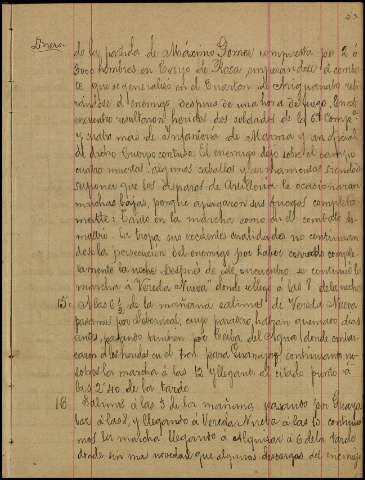 Enero.
de la partida de Máximo Gomez compuesta por 2 ó
3000 hombres en Corojo de Rosa, empezándose el comba-
te que se generalizó en el Cuarton de Ariguanabo reti-
rándose el enemigo despues de una hora de fuego. En este
encuentro resultaron heridos dos soldados de la 6ª Compª
y cuatro mas de Infantería de Marina y un oficial
de dicho Cuerpo contuso. El enemigo dejó sobre el campo
cuatro muertos, caballos y armamentos siendo de
suponer que los disparos de Artilleria le ocasionaran
muchas bajas, porque apagaron sus fuegos completa-
mente: Tanto en la marcha como en el combate de-
mostró la tropa sus excelentes cualidades no continuan-
dose la persecucion del enemigo por haber cerrado comple-
tamente la noche. Despues de este encuentro se continuó la
marcha á Vereda Nueva donde se llegó á las 8 de la noche
15 A las 6 ½ de la mañana salimos de Vereda Nueva
pasamos por cuyo paradero, habian quemado dias
antes, pasando tambien por Ceiba del Agua donde embar-
caron los heridos en el tren para Guanajay continuando no-
sotros la marcha á las 12 y llegando al citado punto á
las 2'40 de la tarde
18 Salimos á las 5 de la mañana pasando por Guaya-
bal á las 8, y llegando á Vereda Nueva á las 10 continua-
mos la marcha llegando á Alquizar á 6 de la tarde
donde sin mas novedad que algunas descargas del enemigo